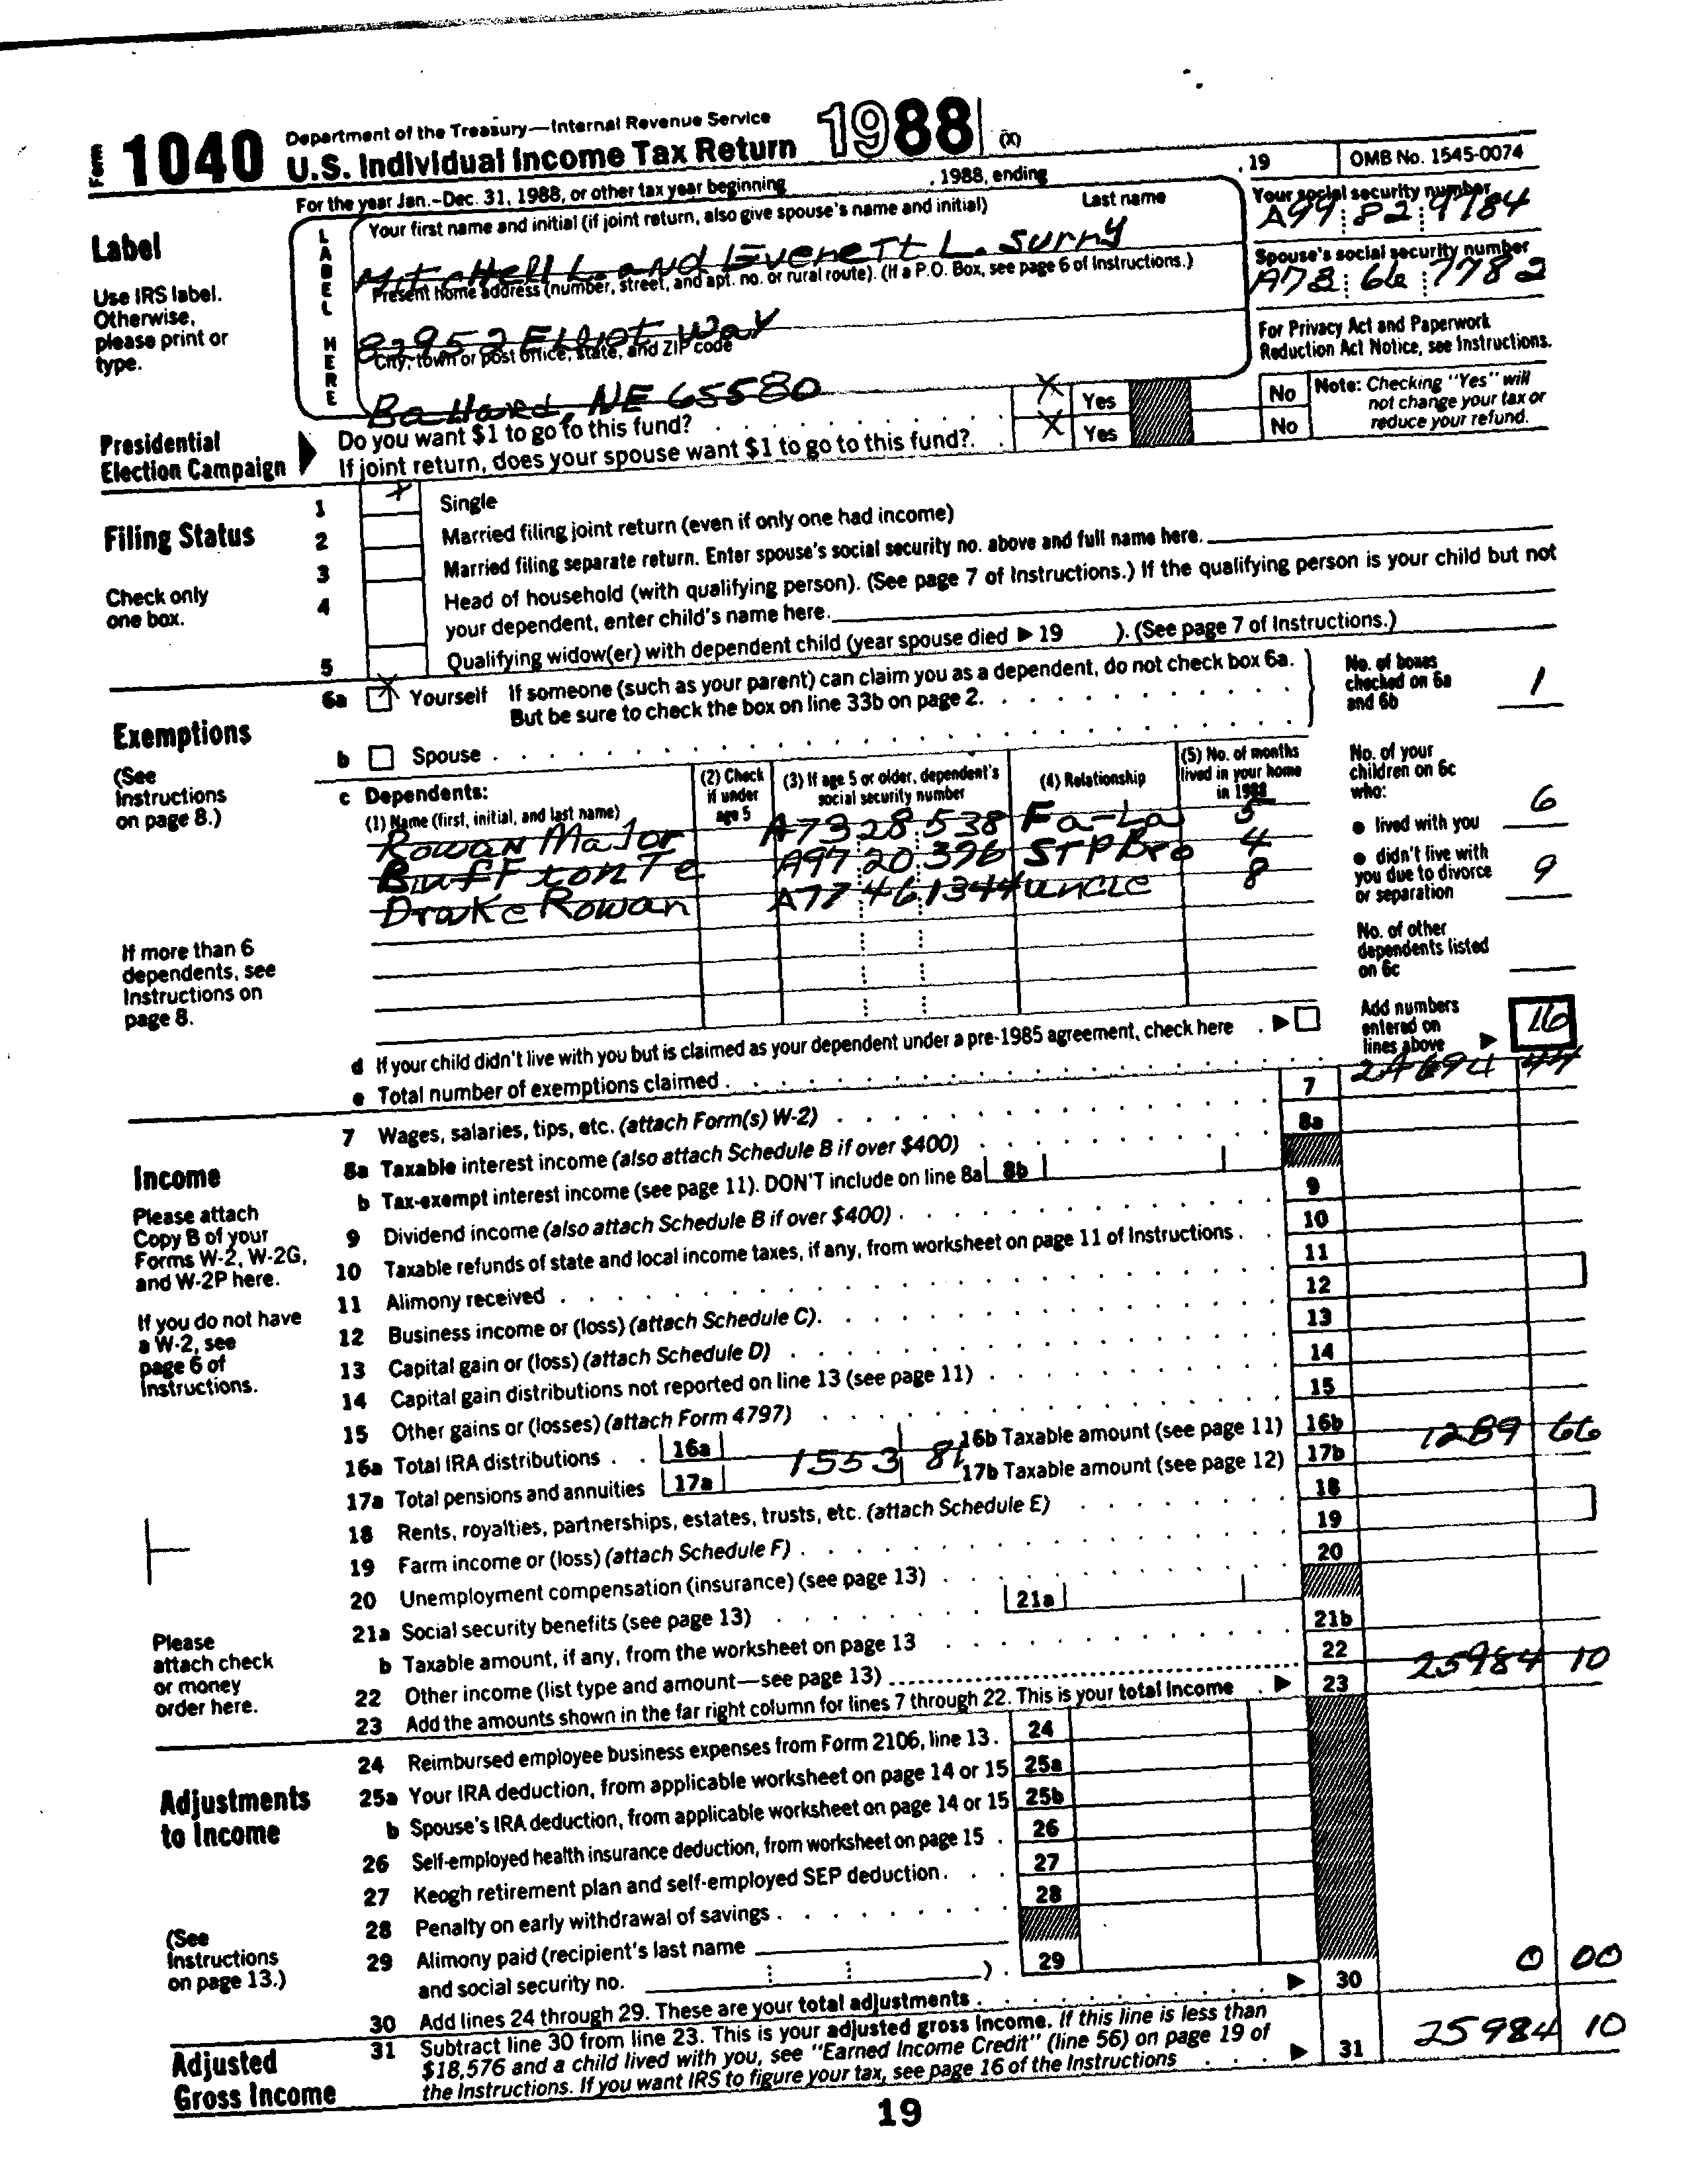 Form 1040 Department of the Treasury—Internal Revenue Service
U.S. Individual Income Tax Return 1988 (X)
For the year Jan.–Dec. 31, 1988, or other tax year beginning , 1988, ending , 19 OMB No. 1545-0074
Label
Use IRS label.
Otherwise,
please print or
type.
LABEL HERE
Your first name and initial (if joint return, also give spouse's name and initial) Last name
Mitchell L. and Everett L. Surny
Your social security number
A99 82 9784
Present home address (number, street, and apt. no. or rural route). (If a P.O. Box, see page 6 of Instructions.)
82952 Elliot Way
Spouse's social security number
A78 66 7782
City, town or post office, state, and ZIP code
Ballard, NE 65580
For Privacy Act and Paperwork
Reduction Act Notice, see Instructions.
Presidential
Election Campaign
Do you want $1 to go to this fund? X Yes No
If joint return, does your spouse want $1 to go to this fund? X Yes No
Note: Checking "Yes" will
not change your tax or
reduce your refund.
Filing Status
Check only
one box.
1 X Single
2 Married filing joint return (even if only one had income)
3 Married filing separate return. Enter spouse's social security no. above and full name here.
4 Head of household (with qualifying person). (See page 7 of Instructions.) If the qualifying person is your child but not
your dependent, enter child's name here.
5 Qualifying widow(er) with dependent child (year spouse died ▶ 19 ). (See page 7 of Instructions.)
Exemptions
(See
Instructions
on page 8.)
6a X Yourself If someone (such as your parent) can claim you as a dependent, do not check box 6a.
But be sure to check the box on line 33b on page 2.
b Spouse
No. of boxes
checked on 6a
and 6b 1
c Dependents:
(1) Name (first, initial, and last name)
(2) Check
if under
age 5
(3) If age 5 or older, dependent's
social security number
(4) Relationship
(5) No. of months
lived in your home
in 1988
Rowan Major A73 28 538 Fa-La 5
Buffton Te A97 20 396 STPBro 4
Drake Rowan A77 46 1344 uncle 8
No. of your
children on 6c
who:
● lived with you 6
● didn't live with
you due to divorce
or separation 9
No. of other
dependents listed
on 6c
If more than 6
dependents, see
Instructions on
page 8.
d If your child didn't live with you but is claimed as your dependent under a pre-1985 agreement, check here ▶
e Total number of exemptions claimed
Add numbers
entered on
lines above ▶ 16
Income
Please attach
Copy B of your
Forms W-2, W-2G,
and W-2P here.
If you do not have
a W-2, see
page 6 of
Instructions.
Please
attach check
or money
order here.
7 Wages, salaries, tips, etc. (attach Form(s) W-2) 7 24694 44
8a Taxable interest income (also attach Schedule B if over $400) 8a
b Tax-exempt interest income (see page 11). DON'T include on line 8a 8b
9 Dividend income (also attach Schedule B if over $400) 9
10 Taxable refunds of state and local income taxes, if any, from worksheet on page 11 of Instructions 10
11 Alimony received 11
12 Business income or (loss) (attach Schedule C) 12
13 Capital gain or (loss) (attach Schedule D) 13
14 Capital gain distributions not reported on line 13 (see page 11) 14
15 Other gains or (losses) (attach Form 4797) 15
16a Total IRA distributions 16a 16b Taxable amount (see page 11) 16b
17a Total pensions and annuities 17a 1553 81 17b Taxable amount (see page 12) 17b 1289 66
18 Rents, royalties, partnerships, estates, trusts, etc. (attach Schedule E) 18
19 Farm income or (loss) (attach Schedule F) 19
20 Unemployment compensation (insurance) (see page 13) 20
21a Social security benefits (see page 13) 21a
b Taxable amount, if any, from the worksheet on page 13 21b
22 Other income (list type and amount—see page 13) 22
23 Add the amounts shown in the far right column for lines 7 through 22. This is your total income ▶ 23 25984 10
Adjustments
to Income
(See
Instructions
on page 13.)
24 Reimbursed employee business expenses from Form 2106, line 13 24
25a Your IRA deduction, from applicable worksheet on page 14 or 15 25a
b Spouse's IRA deduction, from applicable worksheet on page 14 or 15 25b
26 Self-employed health insurance deduction, from worksheet on page 15 26
27 Keogh retirement plan and self-employed SEP deduction 27
28 Penalty on early withdrawal of savings 28
29 Alimony paid (recipient's last name
and social security no. ) 29
30 Add lines 24 through 29. These are your total adjustments ▶ 30 0 00
Adjusted
Gross Income
31 Subtract line 30 from line 23. This is your adjusted gross income. If this line is less than
$18,576 and a child lived with you, see "Earned Income Credit" (line 56) on page 19 of
the Instructions. If you want IRS to figure your tax, see page 16 of the Instructions ▶ 31 25984 10
19